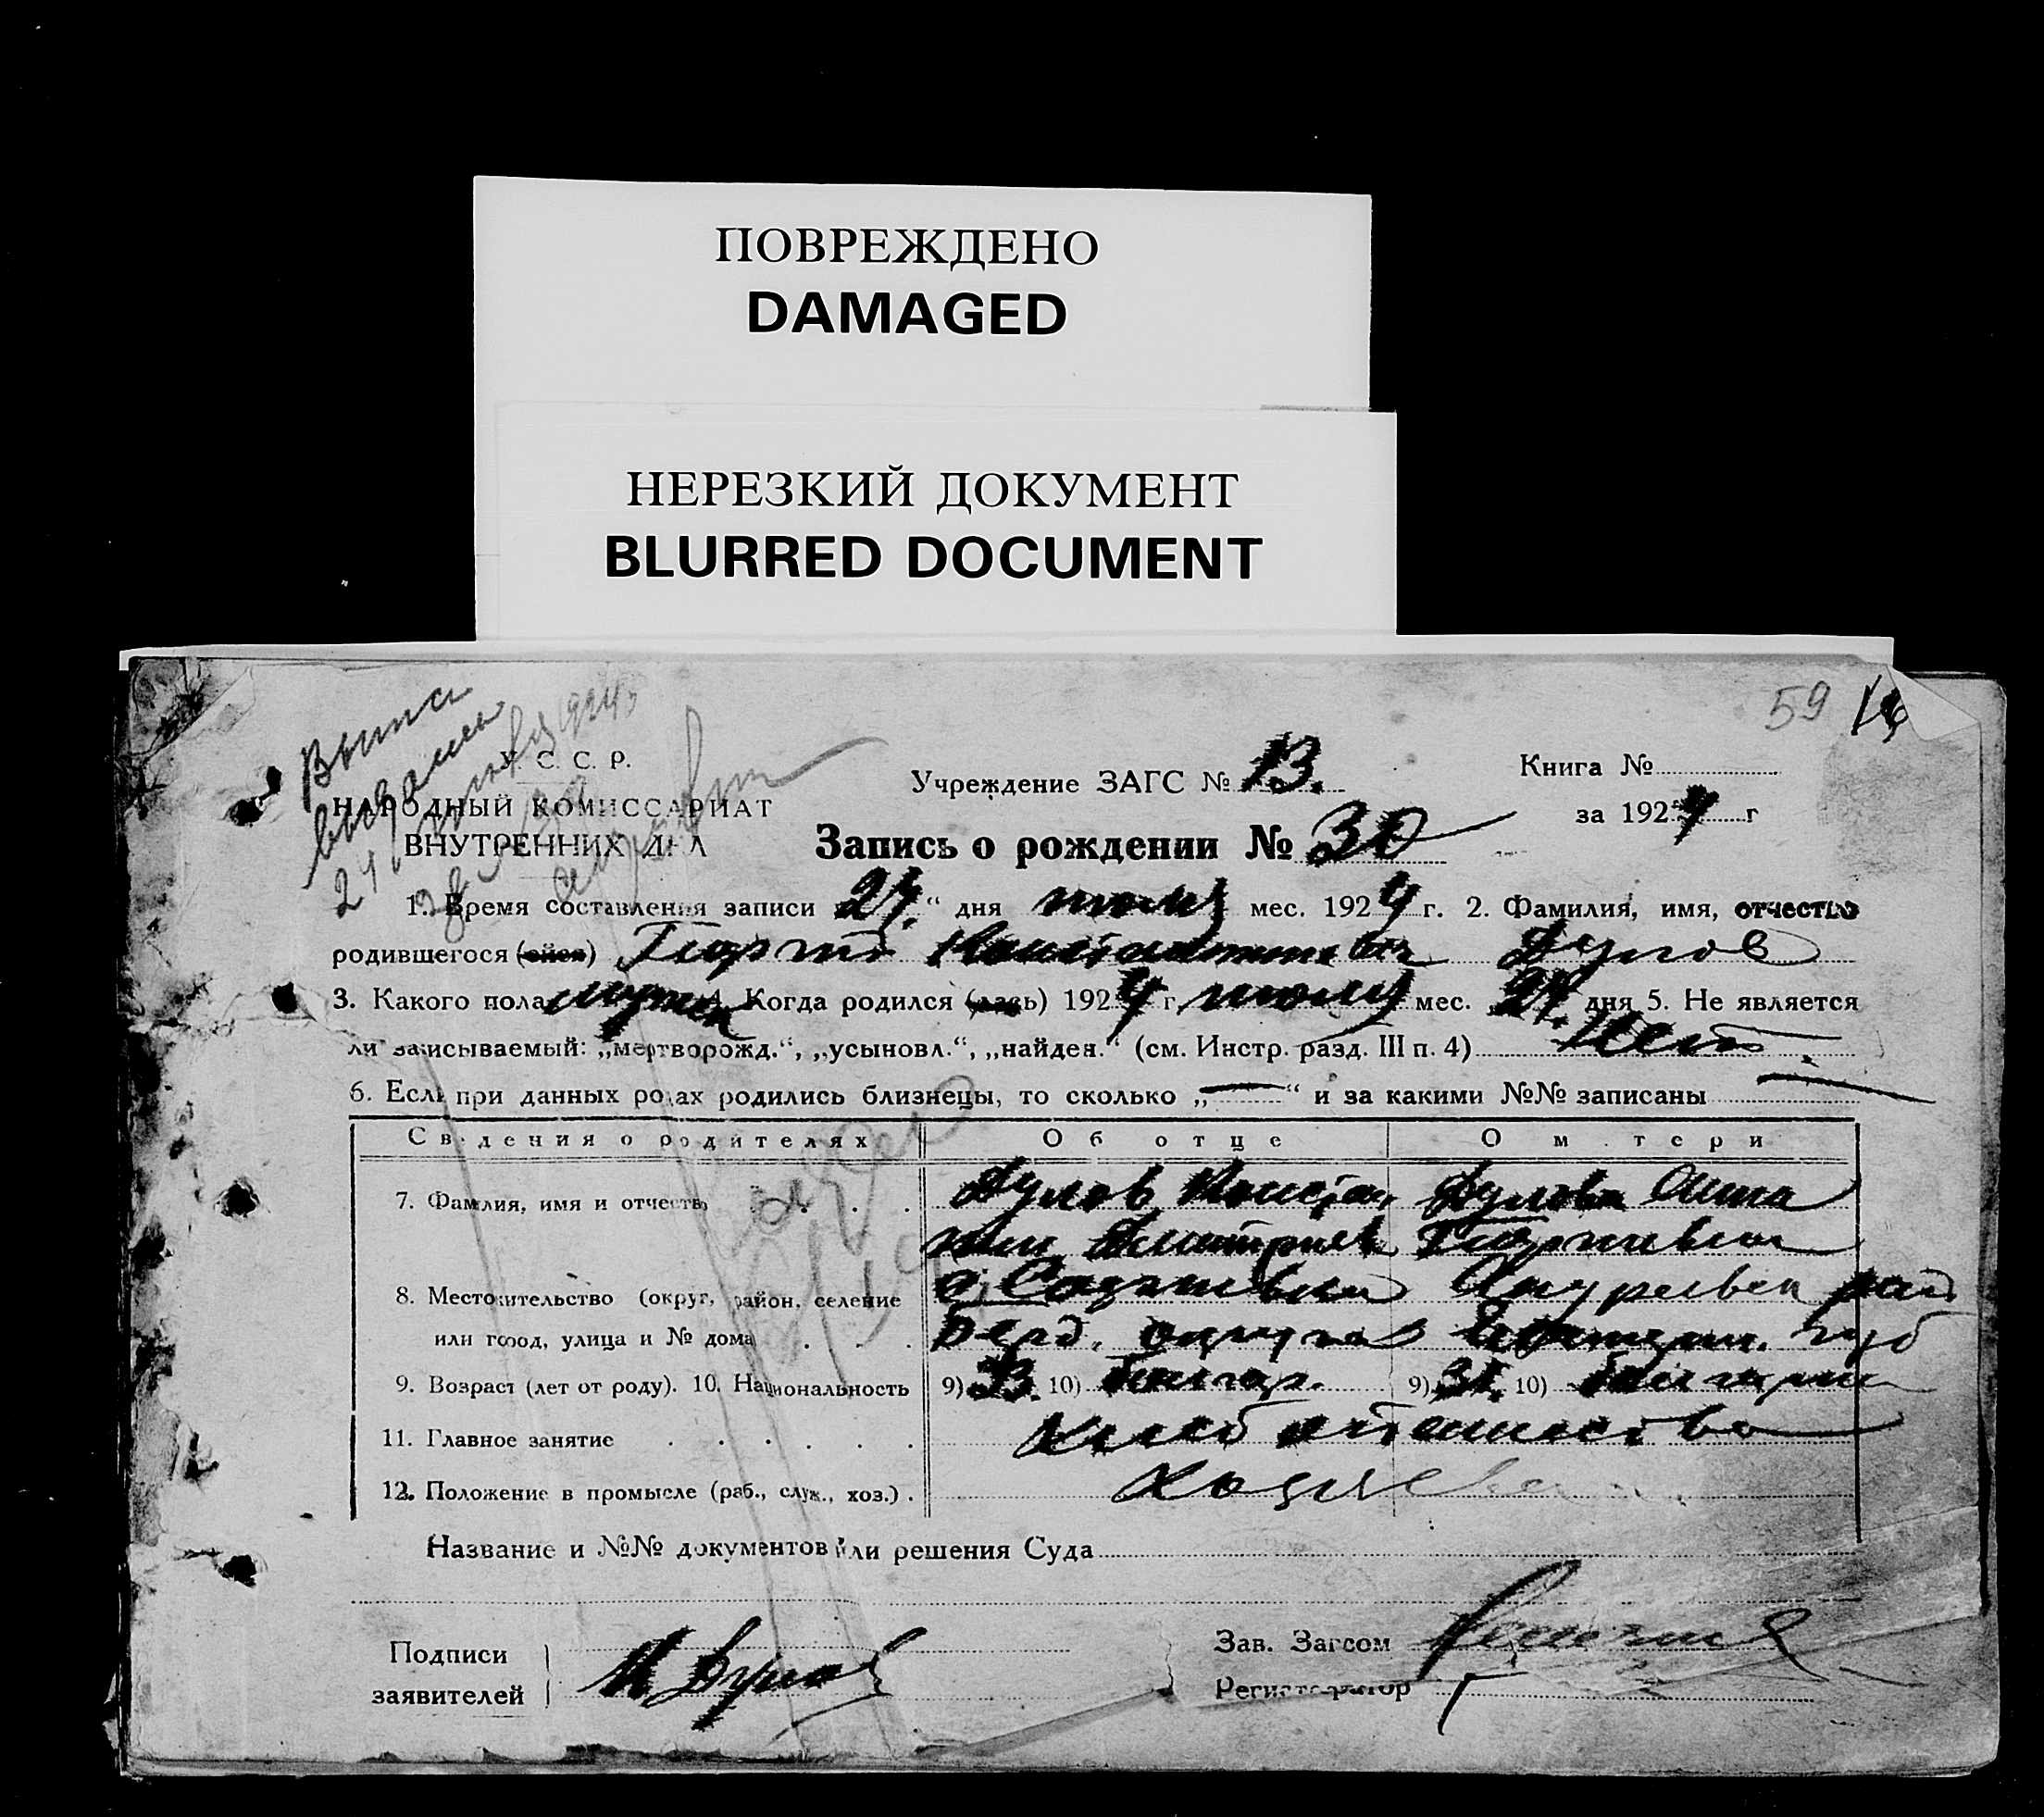 ПОВРЕЖДЕНО
DAMAGED
НЕРЕЗКИЙ ДОКУМЕНТ
BLURRED DOCUMENT
59
Выпись
выдана
24 1924
У. С. С. Р.
НАРОДНЫЙ КОМИССАРИАТ
ВНУТРЕННИХ ДЕЛ
Учреждение ЗАГС № 13.
Книга №
за 1924 г
Запись о рождении № 30
1. Время составления записи 27 “ дня июля мес. 1924 г. 2. Фамилия, имя, отчество
родившегося (ейся) Георгий Константинович Дулов
3. Какого пола мужск 4. Когда родился (лась) 1924 г. июля мес. 27. дня 5. Не является
ли записываемый: „мертворожд.“, „усыновл.“, „найден.“ (см. Инстр. разд. III п. 4) Нет.
6. Если при данных родах родились близнецы, то сколько „ — “ и за какими №№ записаны —
Сведения о родителях Об отце О матери
7. Фамилия, имя и отчество Дулов Констан Дулова Анна
тин Дмитриев Георгиевна
8. Местожительство (округ, район, селение район
или город, улица и № дома Берд. округа губ
9. Возраст (лет от роду). 10. Национальность 9) 33. 10) болгар. 9) 31. 10) болгарка
11. Главное занятие Хлебопашество
12. Положение в промысле (раб., служ., хоз.) Хозяева
Название и №№ документов или решения Суда
Подписи
заявителей
К Дулов
Зав. Загсом
Регистратор